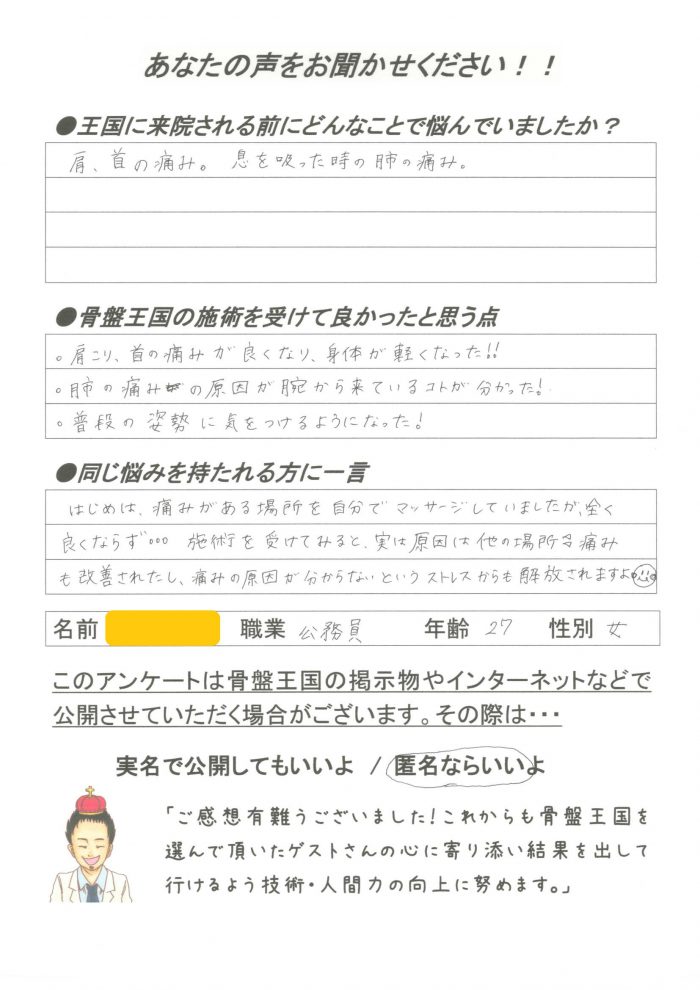 あなたの声をお聞かせください！！
●王国に来院される前にどんなことで悩んでいましたか？
肩、首の痛み。 息を吸った時の肺の痛み。
●骨盤王国の施術を受けて良かったと思う点
○肩こり、首の痛みが良くなり、身体が軽くなった!!
○肺の痛みの原因が腕から来ているコトが分かった!
○普段の姿勢に気をつけるようになった!
●同じ悩みを持たれる方に一言
はじめは、痛みがある場所を自分でマッサージしていましたが、全く
良くならず… 施術を受けてみると、実は原因は他の場所で痛み
も改善されたし、痛みの原因が分からないというストレスからも解放されますよ
名前 職業 公務員 年齢 27 性別 女
このアンケートは骨盤王国の掲示物やインターネットなどで
公開させていただく場合がございます。その際は・・・
実名で公開してもいいよ / 匿名ならいいよ
「ご感想有難うございました！これからも骨盤王国を
選んで頂いたゲストさんの心に寄り添い結果を出して
行けるよう技術・人間力の向上に努めます。」